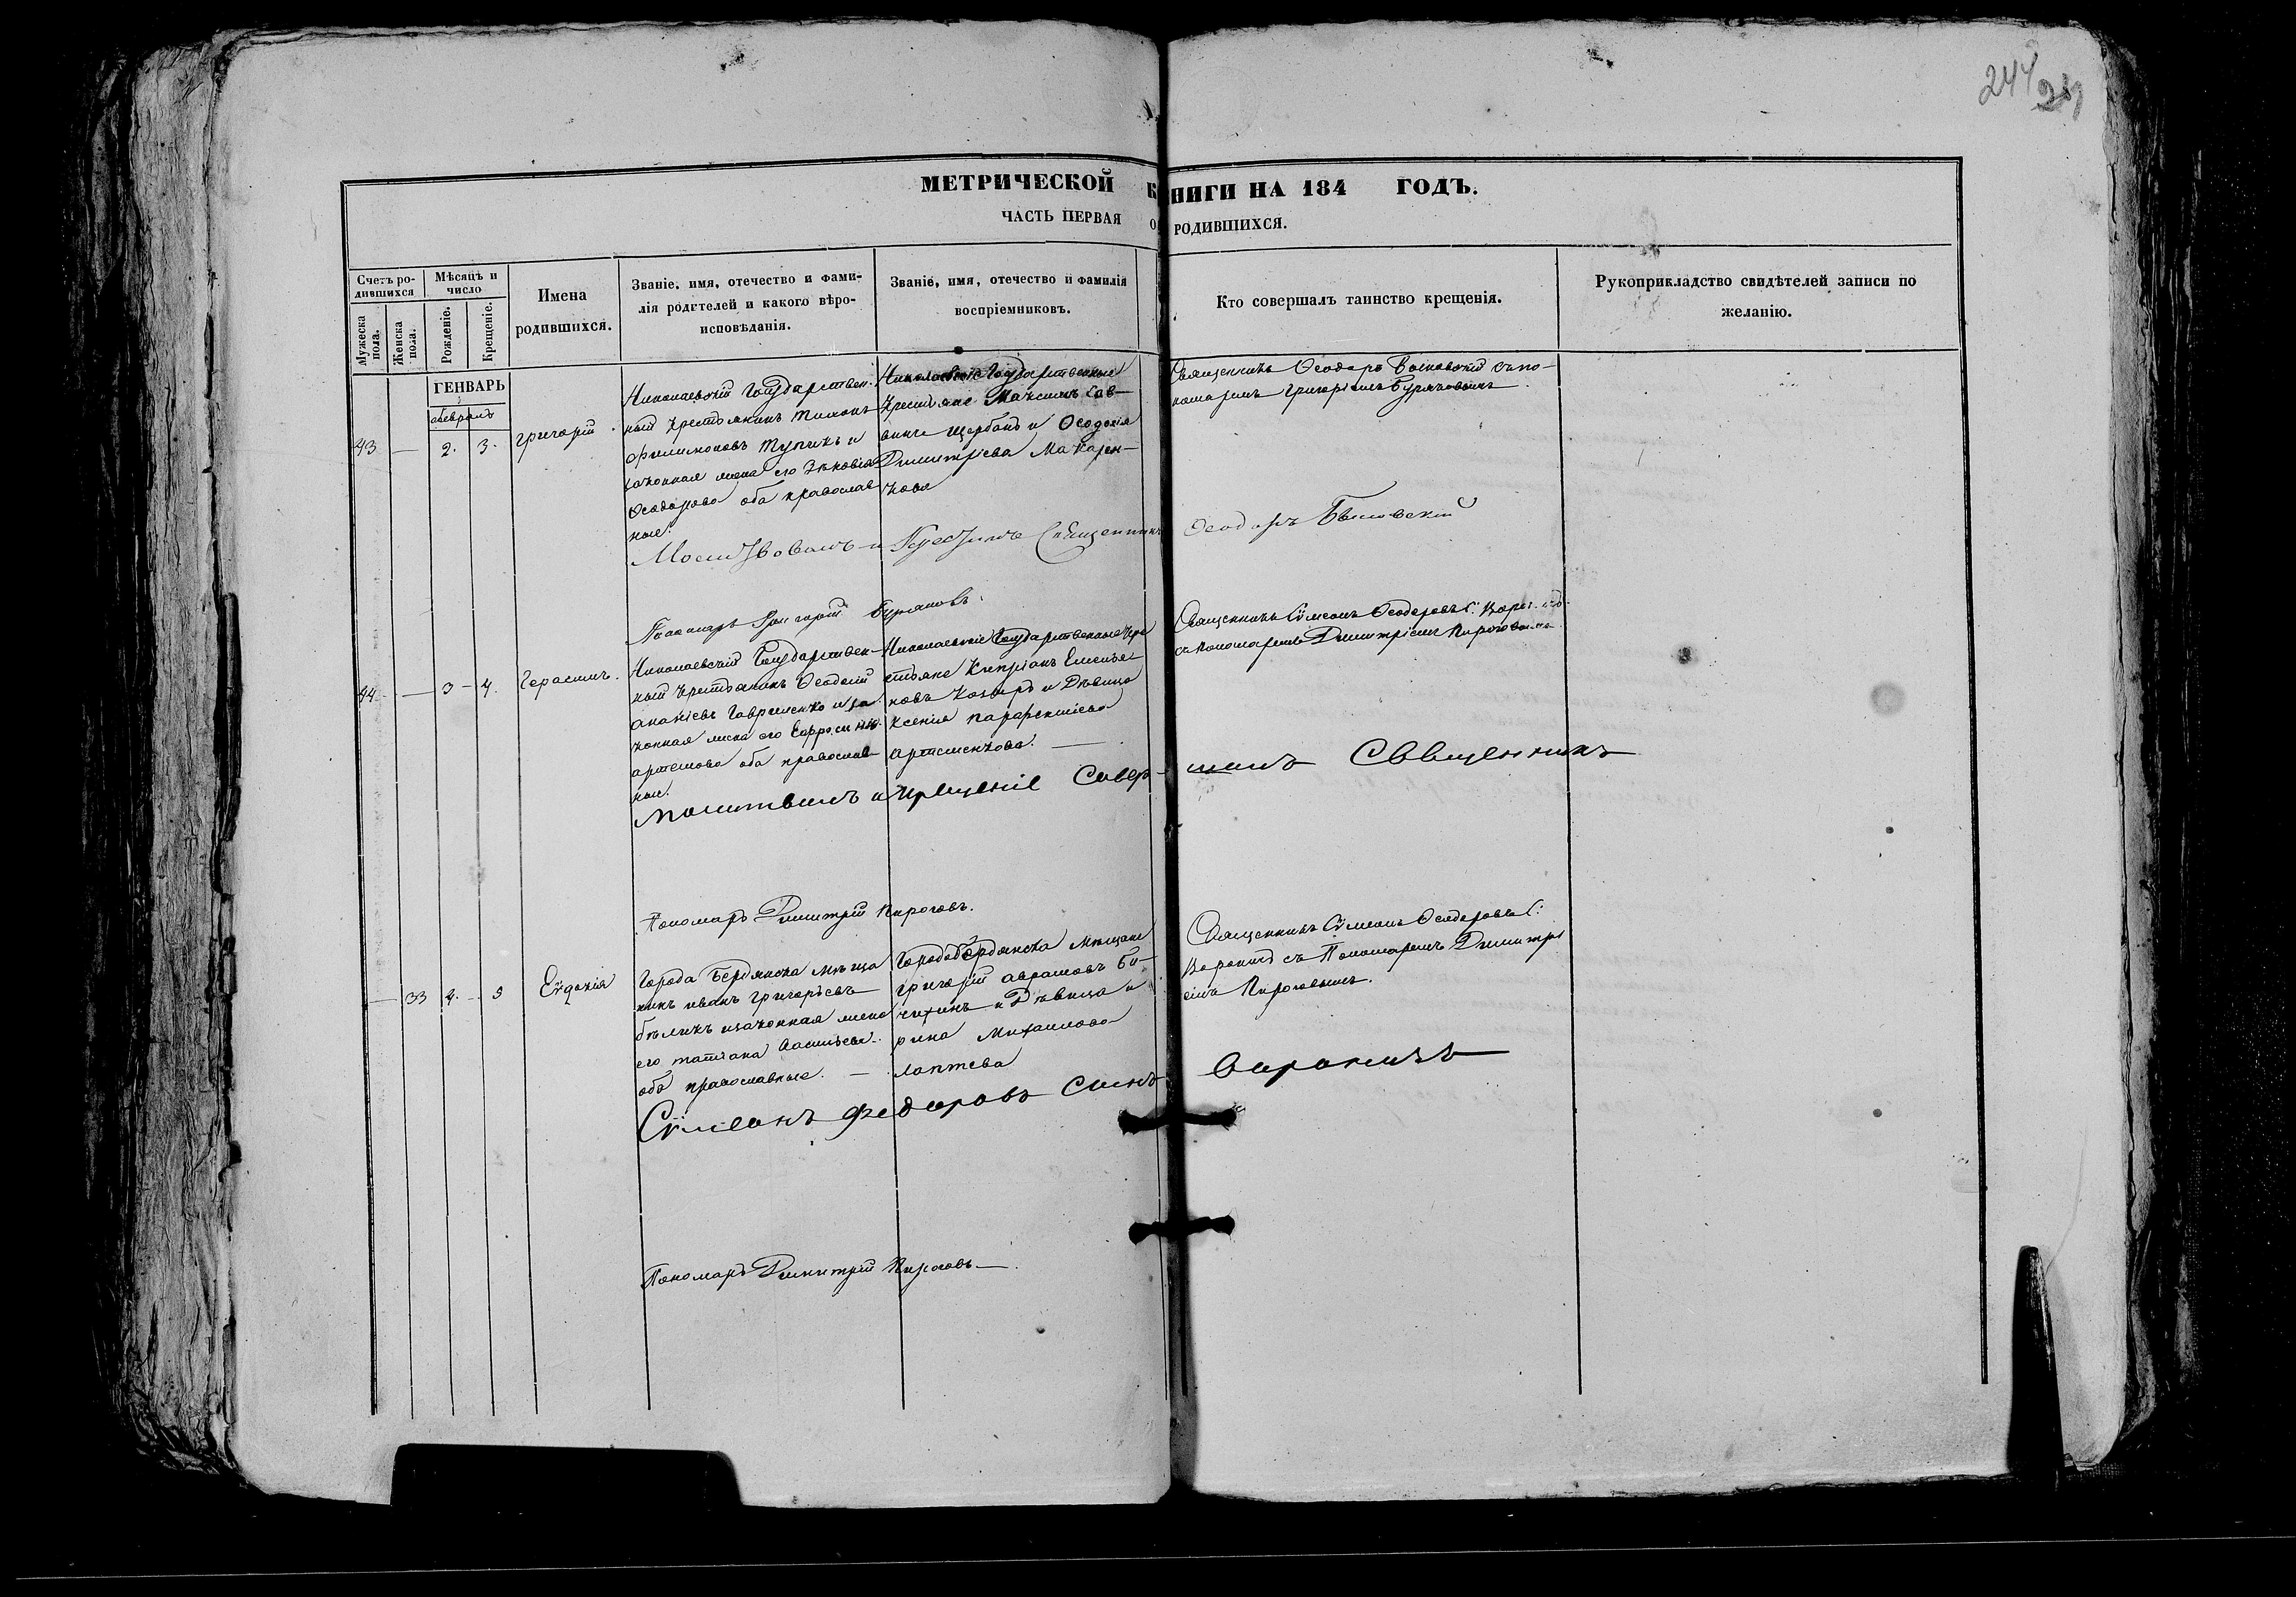 244
МЕТРИЧЕСКОЙ КНИГИ НА 184 ГОДЪ.
ЧАСТЬ ПЕРВАЯ О РОДИВШИХСЯ.
Счетъ родившихся
Мужеска пола.
Женска пола.
Мѣсяцъ и число
Рожденіе.
Крещеніе.
Имена родившихся.
Званіе, имя, отечество и фами-
лія родителей и какого вѣро-
исповѣданія.
Званіе, имя, отечество и фамилія
воспріемниковъ.
Кто совершалъ таинство крещенія.
Рукоприкладство свидѣтелей записи по
желанію.
ГЕНВАРЬ
февраль
43 — 2. 3. Григорій.
Николаевскій Государствен-
ный Крестьянинъ Тимонъ
Филимоновъ Тупикъ и
законная жена его Зѣновія
Ѳеодорова оба православ
ные.
Николаевскіе Государственные
Крестьяне Максимъ Сав-
Щербань и Ѳеодосія
Димитріева Макарен-
кова
Священникъ Ѳеодоръ съ по-
номаремъ Григоріемъ Буряковымъ.
Молитвовалъ и Крестилъ Священникъ Ѳеодоръ
Пономарь Григорій Буряковъ.
44 — 3 — 4. Герасимъ.
Николаевскій Государствен-
ный Крестьянинъ Ѳеодосій
Ананіевъ Гавриленко и за
конная жена его Евфросинія
Артемова оба православ
ные.
Николаевскіе Государственные Кре
стьяне Кипріанъ Емелья-
новъ Козырь и Дѣвица
Ксенія
Артеменкова. —
Священникъ Сѷмеонъ Ѳеодоровъ С:
съ Пономаремъ Димитріемъ Пироговымъ
молитвилъ и крещеніе Совер- шилъ Священникъ
Пономарь Димитрій Пироговъ.
— 33 4. — 5 Еѵдокія
Города Бердянска мѣща
нинъ Иванъ Григорьевъ
Бѣликъ и законная жена
его Татіана Васильева.
оба православные. —
Города Бердянска Мѣщане
Григорій Аврамовъ Би-
чихинъ и Дѣвица И
рина Михаилова
Лаптева
Священникъ Сѷмеонъ Ѳеодоровъ С:
съ Пономаремъ Димитрі
емъ Пироговымъ.
Сѷмеонъ Федоровъ Сынъ
Пономарь Димитрій Пироговъ —